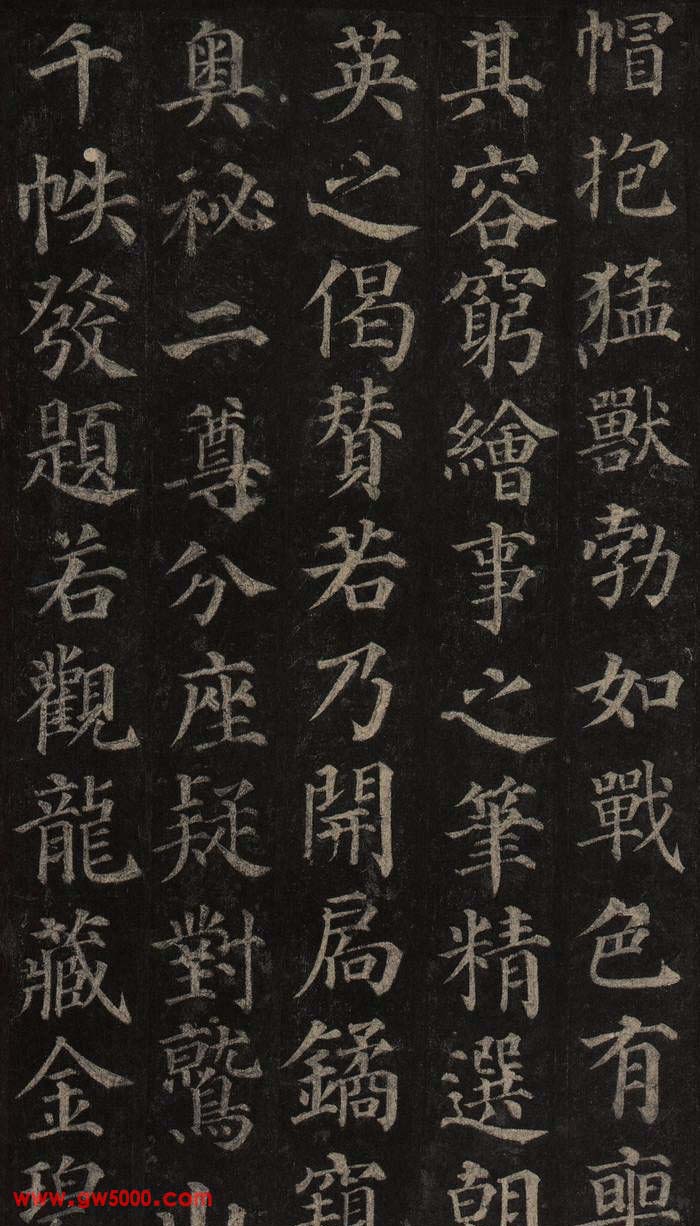 帽抱猛獸勃如戰色有
其容窮繪事之筆精選朝
英之偈贊若乃開扃鐍窺
奥祕二尊分座疑對鷲山
千帙發題若觀龍藏金
www.gw5000.com